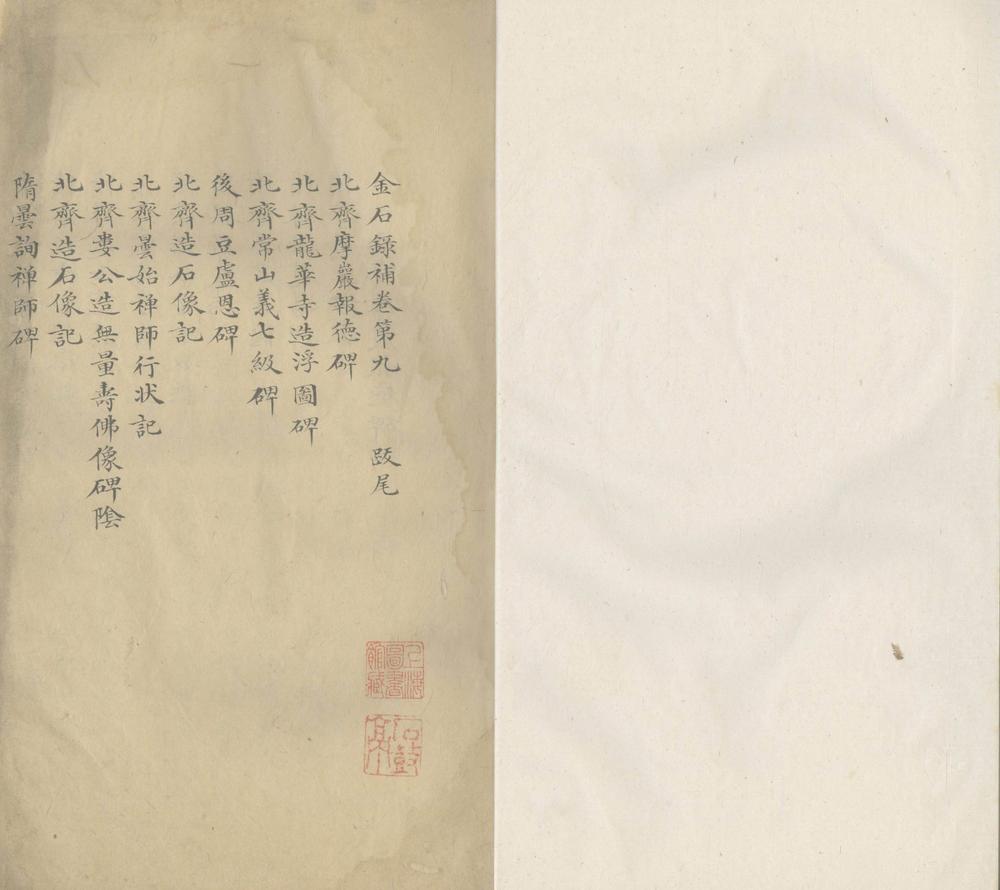 金石錄補卷第九 跋尾
北齊摩巖報德碑
北齊龍華寺造浮圖碑
北齊常山義七級碑
後周豆盧恩碑
北齊造石像記
北齊曇始禅師行状記
北齊婁公造無量壽佛像碑陰
北齊造石像記
隋曇詢禅師碑
上海圖書館藏